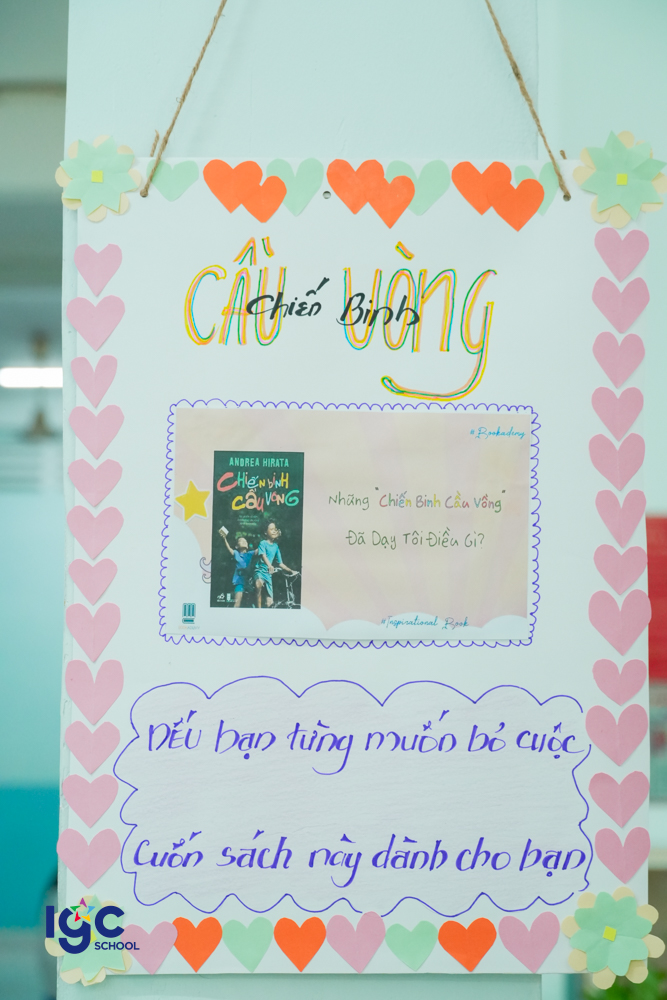 CẦU VÒNG
Chiến Binh
#Bookading
ANDREA HIRATA
CHIẾN BINH
CẦU VỒNG
Những "Chiến Binh Cầu Vồng"
Đã Dạy Tôi Điều Gì?
#Inspirational Book
NẾU bạn từng muốn bỏ cuộc,
Cuốn sách này dành cho bạn
IGC
SCHOOL